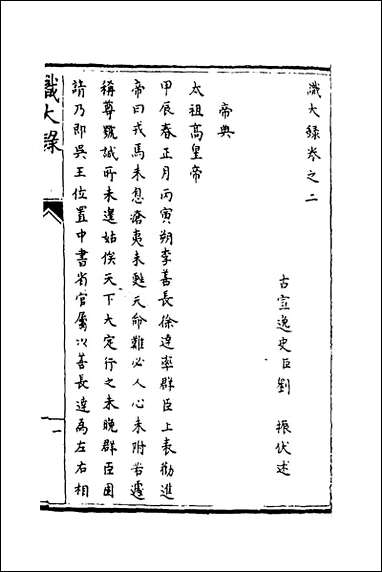 識大錄卷之二
古宣逸史臣劉 振伏述
帝典
太祖高皇帝
甲辰春正月丙寅朔李善長徐達率群臣上表勸進
帝曰戎馬未息瘡夷未甦天命難必人心未附若遽
稱尊號誠所未遑姑俟天下大定行之未晚群臣固
請乃即吳王位置中書省官屬以善長達為左右相
識大錄
一